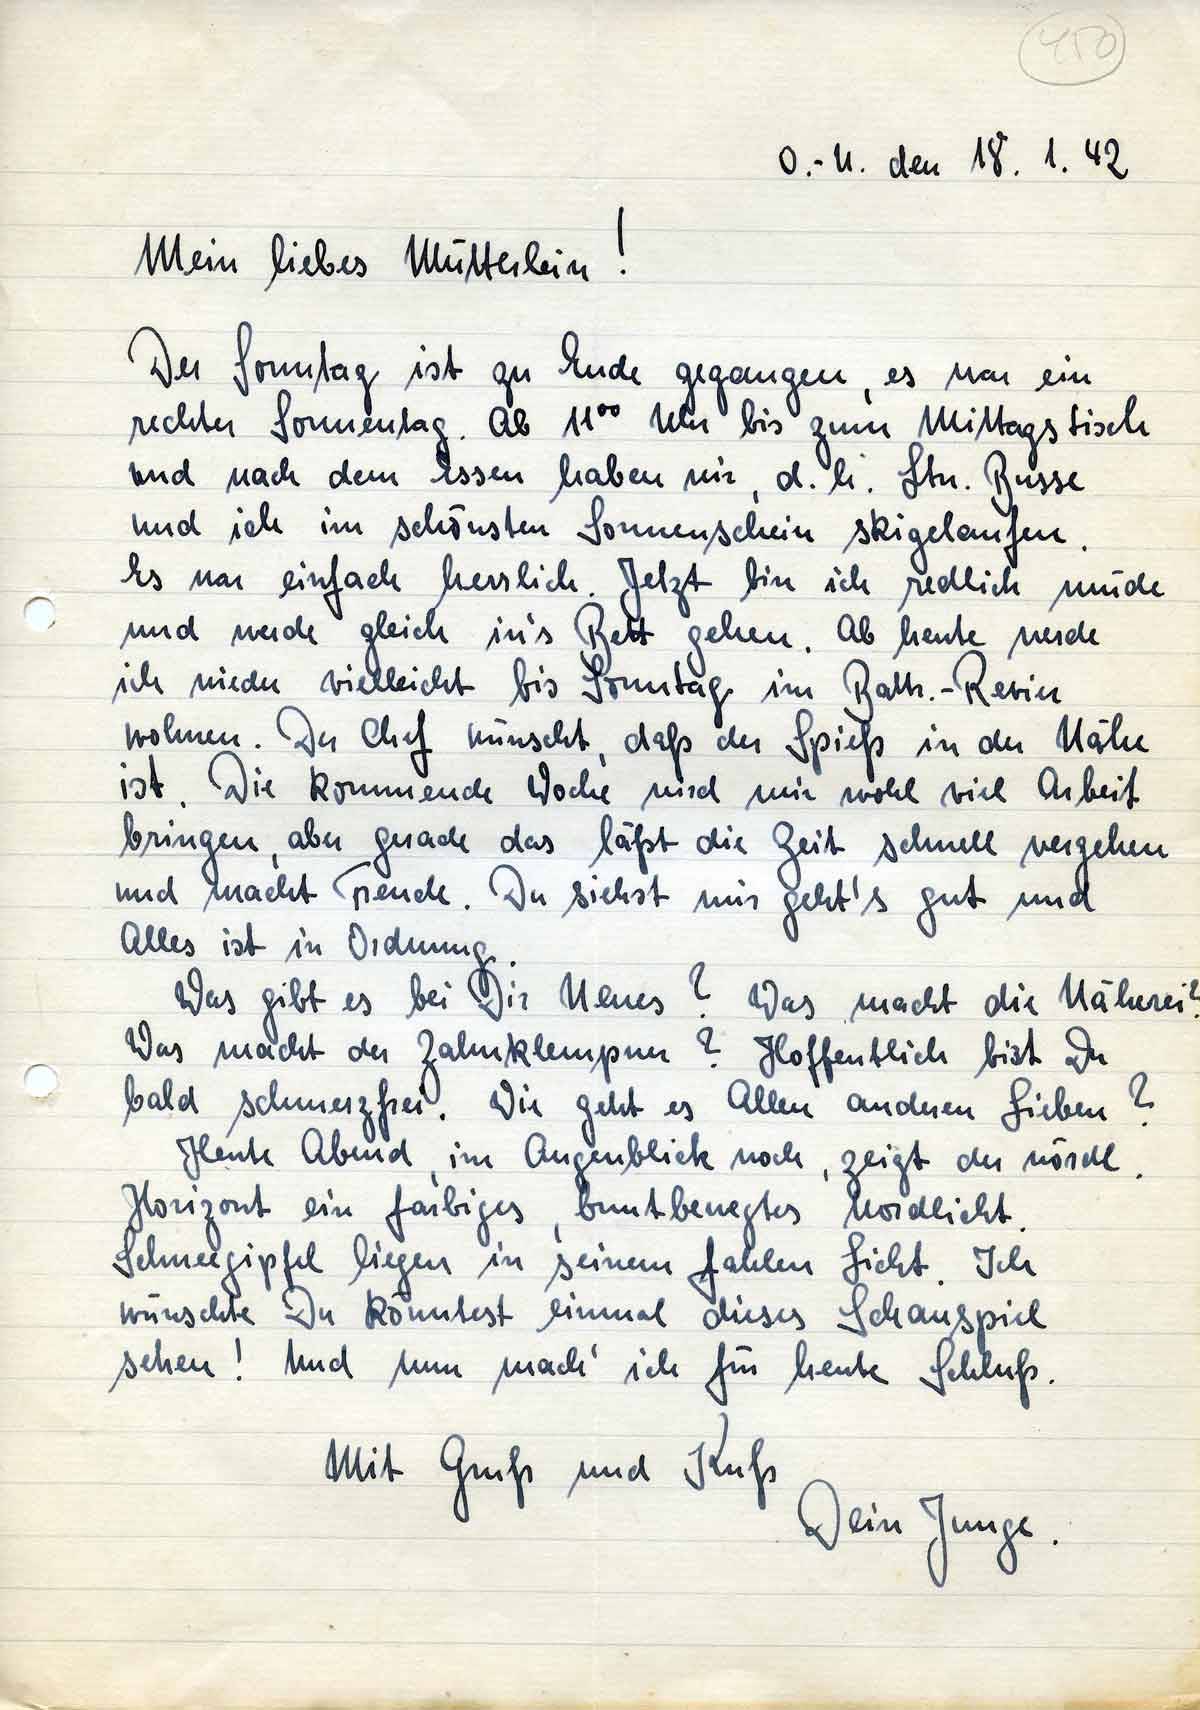 450
O.-U. den 18. 1. 42
Mein liebes Mütterlein!
Der Sonntag ist zu Ende gegangen, es war ein
rechter Sonnentag. Ab 11⁰⁰ Uhr bis zum Mittagstisch
und nach dem Essen haben wir, d. h. Ltn. Busse
und ich im schönsten Sonnenschein skigelaufen.
Es war einfach herrlich. Jetzt bin ich redlich müde
und werde gleich in's Bett gehen. Ab heute werde
ich wieder vielleicht bis Sonntag im Battr.-Revier
wohnen. Der Chef wünscht, daß der Spieß in der Nähe
ist. Die kommende Woche wird mir wohl viel Arbeit
bringen, aber gerade das läßt die Zeit schnell vergehen
und macht Freude. Du siehst mir geht's gut und
Alles ist in Ordnung.
Was gibt es bei Dir Neues? Was macht die Näherei?
Was macht der Zahnklempner? Hoffentlich bist Du
bald schmerzfrei. Wie geht es Allen anderen Lieben?
Heute Abend, im Augenblick noch, zeigt der nördl.
Horizont ein farbiges, buntbewegtes Nordlicht.
Schneegipfel liegen in seinem fahlen Licht. Ich
wünschte Du könntest einmal dieses Schauspiel
sehen! Und nun mach' ich für heute Schluß.
Mit Gruß und Kuß
Dein Junge.